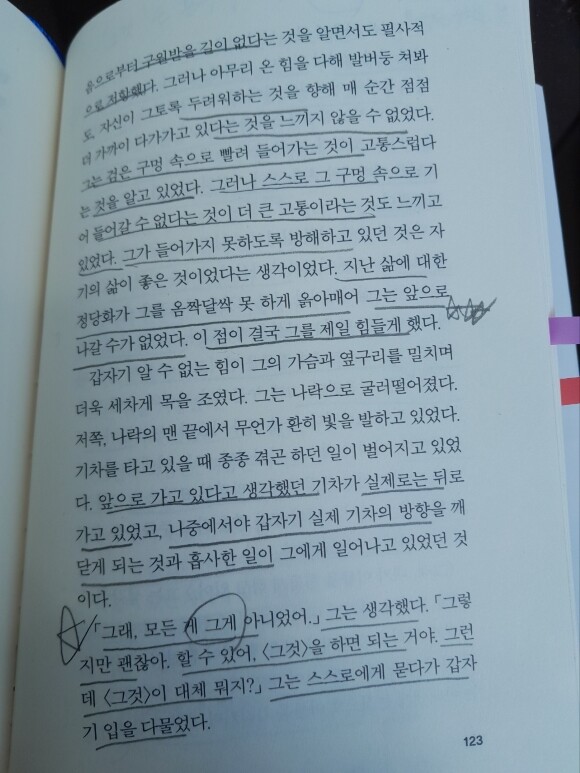 음으로부터 구원받을 길이 없다는 것을 알면서도 필사적
으로 저항했다. 그러나 아무리 온 힘을 다해 발버둥 쳐봐
도, 자신이 그토록 두려워하는 것을 향해 매 순간 점점
더 가까이 다가가고 있다는 것을 느끼지 않을 수 없었다.
그는 검은 구멍 속으로 빨려 들어가는 것이 고통스럽다
는 것을 알고 있었다. 그러나 스스로 그 구멍 속으로 기
어 들어갈 수 없다는 것이 더 큰 고통이라는 것도 느끼고
있었다. 그가 들어가지 못하도록 방해하고 있던 것은 자
기의 삶이 좋은 것이었다는 생각이었다. 지난 삶에 대한
정당화가 그를 옴짝달싹 못 하게 옭아매어 그는 앞으로
나갈 수가 없었다. 이 점이 결국 그를 제일 힘들게 했다.
갑자기 알 수 없는 힘이 그의 가슴과 옆구리를 밀치며
더욱 세차게 목을 조였다. 그는 나락으로 굴러떨어졌다.
저쪽, 나락의 맨 끝에서 무언가 환히 빛을 발하고 있었다.
기차를 타고 있을 때 종종 겪곤 하던 일이 벌어지고 있었
다. 앞으로 가고 있다고 생각했던 기차가 실제로는 뒤로
가고 있었고, 나중에서야 갑자기 실제 기차의 방향을 깨
닫게 되는 것과 흡사한 일이 그에게 일어나고 있었던 것
이다.
「그래, 모든 게 그게 아니었어.」 그는 생각했다. 「그렇
지만 괜찮아. 할 수 있어, 〈그것〉을 하면 되는 거야. 그런
데 〈그것〉이 대체 뭐지?」 그는 스스로에게 묻다가 갑자
기 입을 다물었다.
123